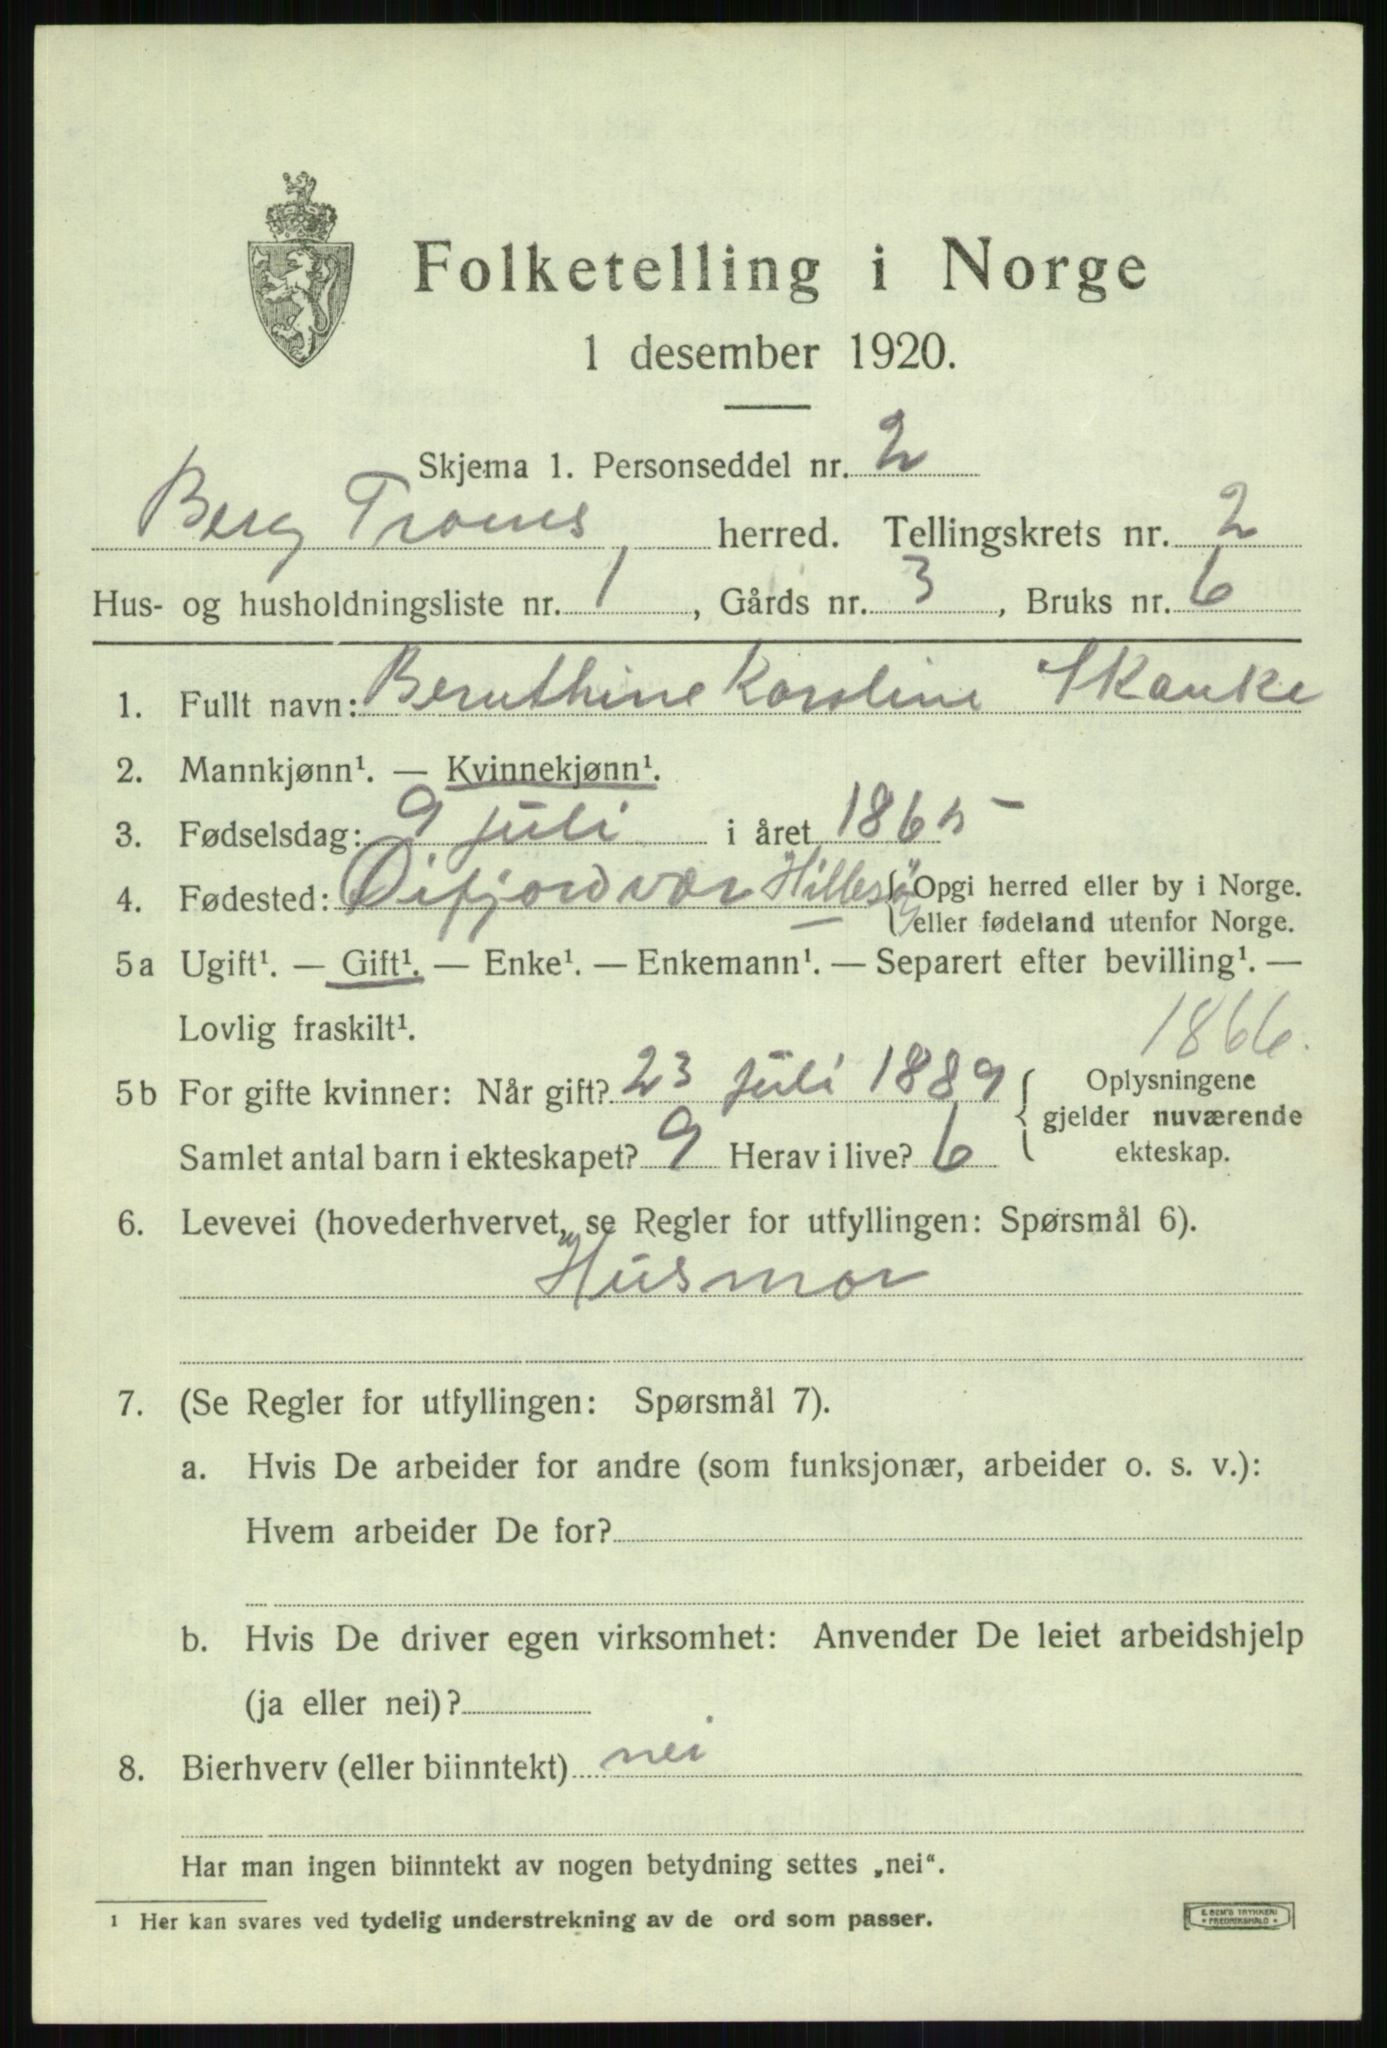 Folketelling i Norge
1 desember 1920.
Skjema 1. Personseddel nr. 2
Berg Troms herred. Tellingskrets nr. 2
Hus- og husholdningsliste nr. 1, Gårds nr. 3, Bruks nr. 6
1. Fullt navn: Bernthine Karoline Skanke
2. Mannkjønn¹. — Kvinnekjønn¹.
3. Fødselsdag: 9 juli i året 1865
4. Fødested: Øifjordvær Hillesøy { Opgi herred eller by i Norge.
eller fødeland utenfor Norge.
5a Ugift¹. — Gift¹. — Enke¹. — Enkemann¹. — Separert efter bevilling¹. —
Lovlig fraskilt¹.
1866.
5b For gifte kvinner: Når gift? 23 juli 1889 { Oplysningene
gjelder nuværende
Samlet antal barn i ekteskapet? 9 Herav i live? 6 ekteskap.
6. Levevei (hovederhvervet, se Regler for utfyllingen: Spørsmål 6).
Husmor
7. (Se Regler for utfyllingen: Spørsmål 7).
a. Hvis De arbeider for andre (som funksjonær, arbeider o. s. v.):
Hvem arbeider De for?
b. Hvis De driver egen virksomhet: Anvender De leiet arbeidshjelp
(ja eller nei)?
8. Bierhverv (eller biinntekt) nei
Har man ingen biinntekt av nogen betydning settes „nei“.
¹ Her kan svares ved tydelig understrekning av de ord som passer.
E. SEM'S TRYKKERI
• FREDRIKSHALD •